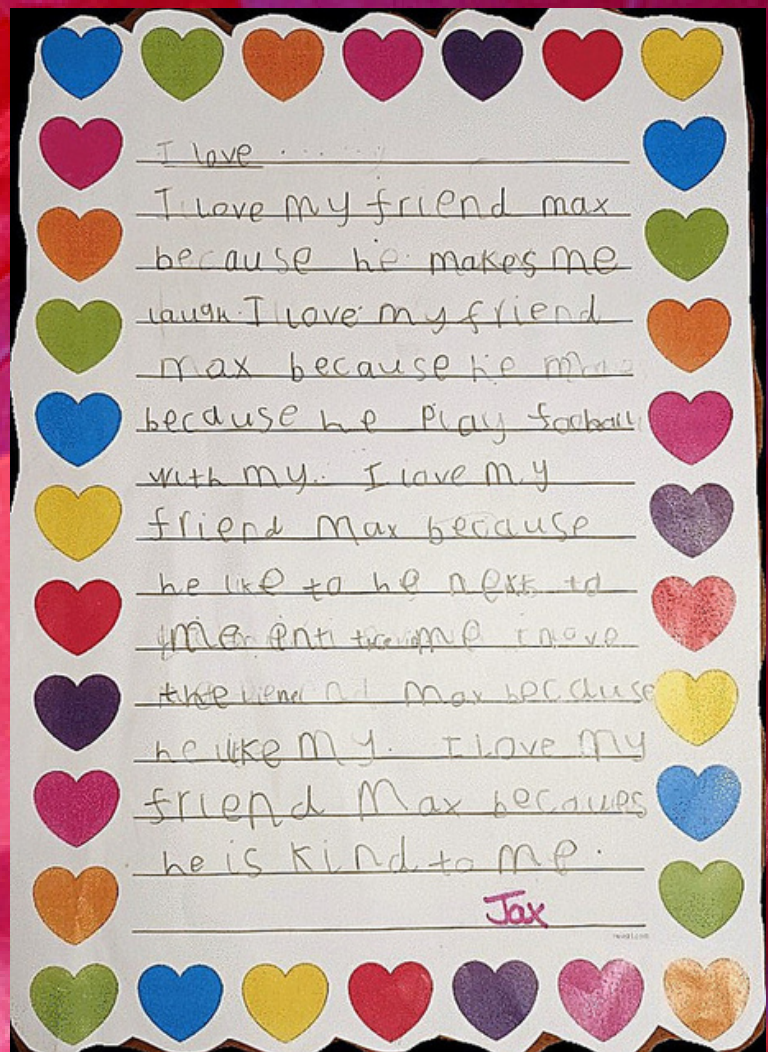 I love
I love my friend max
because he makes me
laugh. I love my friend
max because he
because he play football
with my. I love my
friend Max because
he like to be next to
me
Max because
he like my. I love my
friend Max becaues
he is kind to me.
Jax